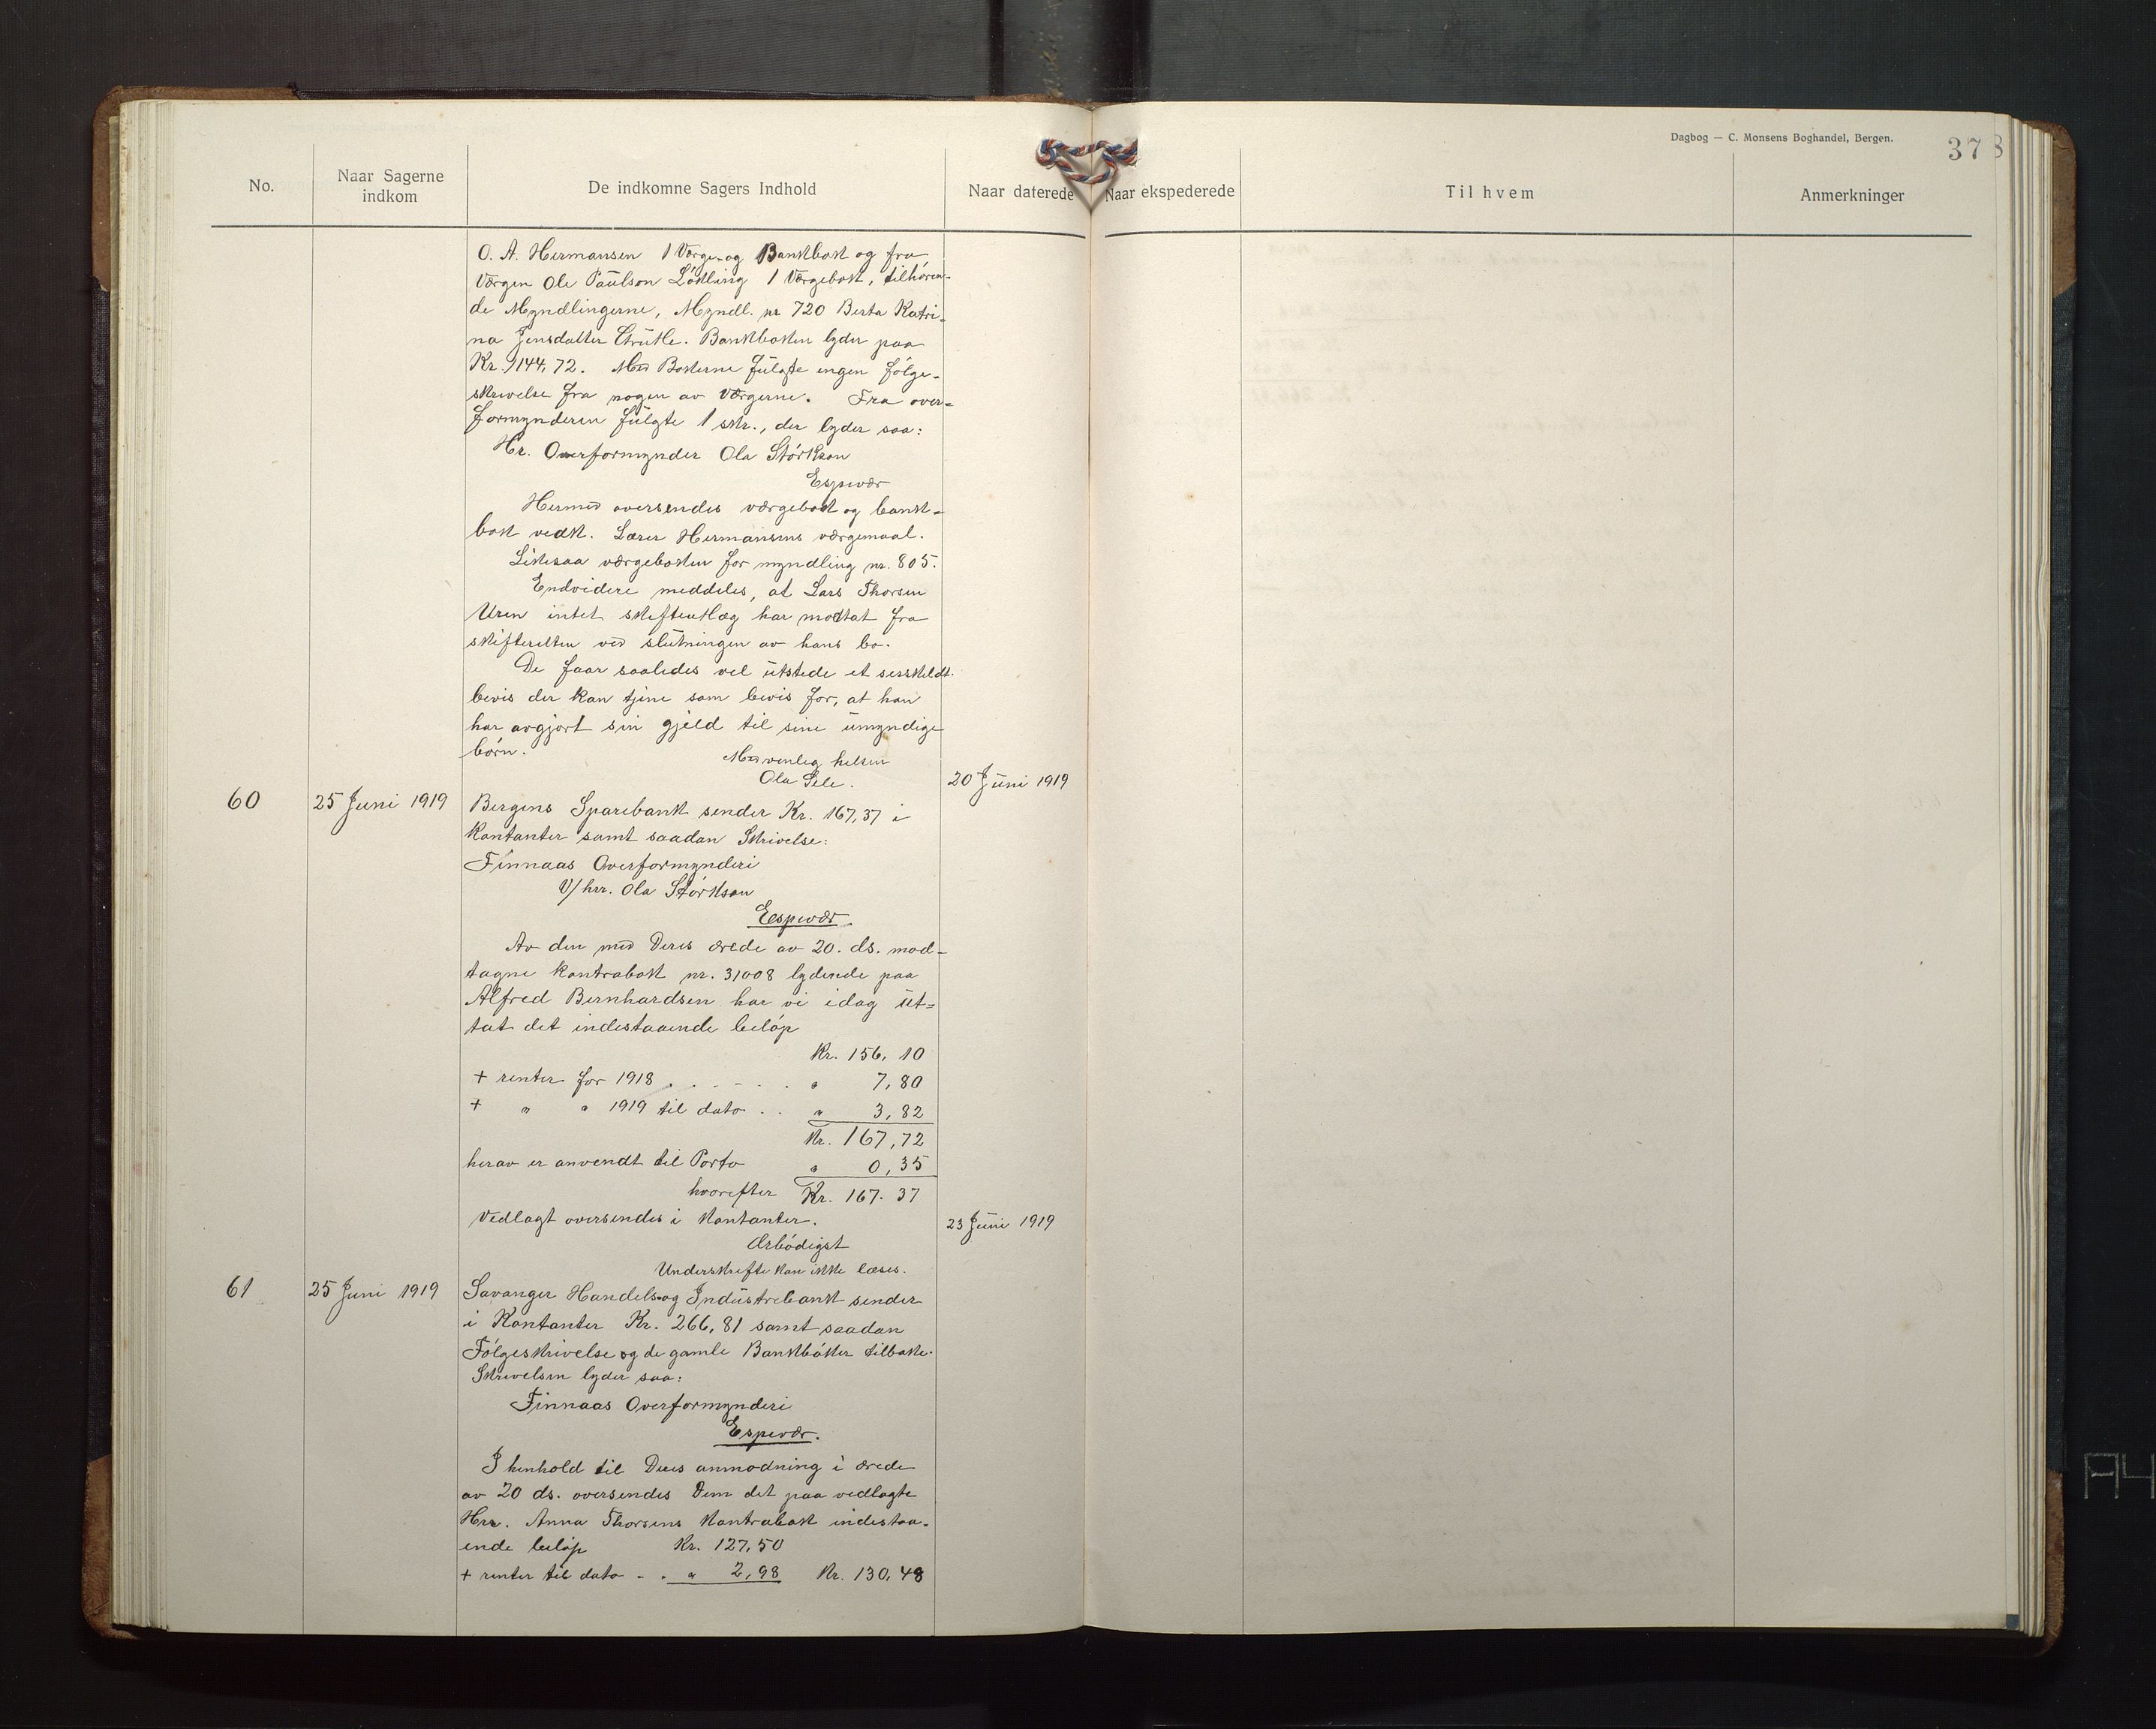 Dagbog — C. Monsens Boghandel, Bergen.
37
No.
Naar Sagerne indkom
De indkomne Sagers Indhold
Naar daterede
Naar ekspederede
Til hvem
Anmerkninger
O. A. Hermansen 1 Værge- og Bankbok og fra
Værgen Ole Paulson Lökling 1 Værgebok, tilhören-
de Myndlingerne, Myndl. nr 720 Berta Katri-
na Jensdatter Grutle. Bankboken lyder paa
Kr. 1144,72. Med Bökerne fulgte ingen fölge-
skrivelse fra nogen av Værgerne. Fra over-
formynderen fulgte 1 skr., der lyder saa:
Hr. Overformynder Ola Störkson
Espevær
Hermed oversendes værgebok og bank-
bok vedk. Lærer Hermansens værgemaal.
Likesaa værgeboken for myndling nr. 805.
Endvidere meddeles, at Lars Thorsen
Uren intet skifteutlæg har modtat fra
skifteretten ved slutningen av hans bo.
De faar saaledes vel utstede et sersskildt
bevis der kan tjene som bevis for, at han
har avgjort sin gjeld til sine umyndige
börn.
Med venleg helsen
Ola Sele.
20 Juni 1919
60
25 Juni 1919
Bergens Sparebank sender Kr. 167,37 i
Kontanter samt saadan Skrivelse:
Finnaas Overformynderi
V/ hrr. Ola Störkson
Espevær.
Av den med Deres ærede av 20. ds. mod-
tagne kontrabok nr. 31008 lydende paa
Alfred Bernhardsen har vi idag ut-
tat det indestaaende belöp
Kr. 156, 10
+ renter for 1918 . . - - . " 7,80
+ " " 1919 til dato . . " 3,82
Kr. 167,72
herav er anvendt til Porto " 0,35
hvorefter Kr. 167.37
Vedlagt oversendes i Kontanter.
23 Juni 1919
Ærbödigst
Underskrifte kan ikke læses.
61
25 Juni 1919
Savanger Handels- og Industrebank sender
i Kontanter Kr. 266,81 samt saadan
Fölgeskrivelse og de gamle Bankböker tilbake.
Skrivelsen lyder saa:
Finnaas Overformynderi
Espevær.
I henhold til Deres anmodning i ærede
av 20 ds. oversendes Dem det paa vedlagte
Hrr. Anna Thorsens Kontrabok indestaa-
ende belöp Kr. 127,50
+ renter til dato - . " 2,98 Kr. 130,48